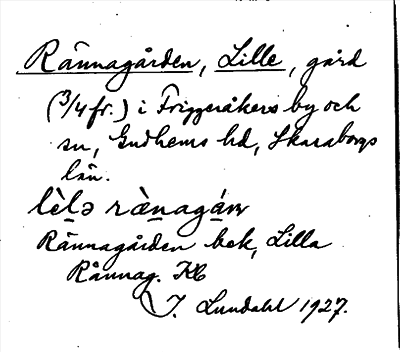 Rännagården, Lille, gård
(3/4 fr.) i Friggeråkers by och
sn, Gudhems hd, Skaraborgs
län.
lèlə rànagáɳ
Rännagården bek, Lilla
Rånnag. JK
J. Lundahl 1927.